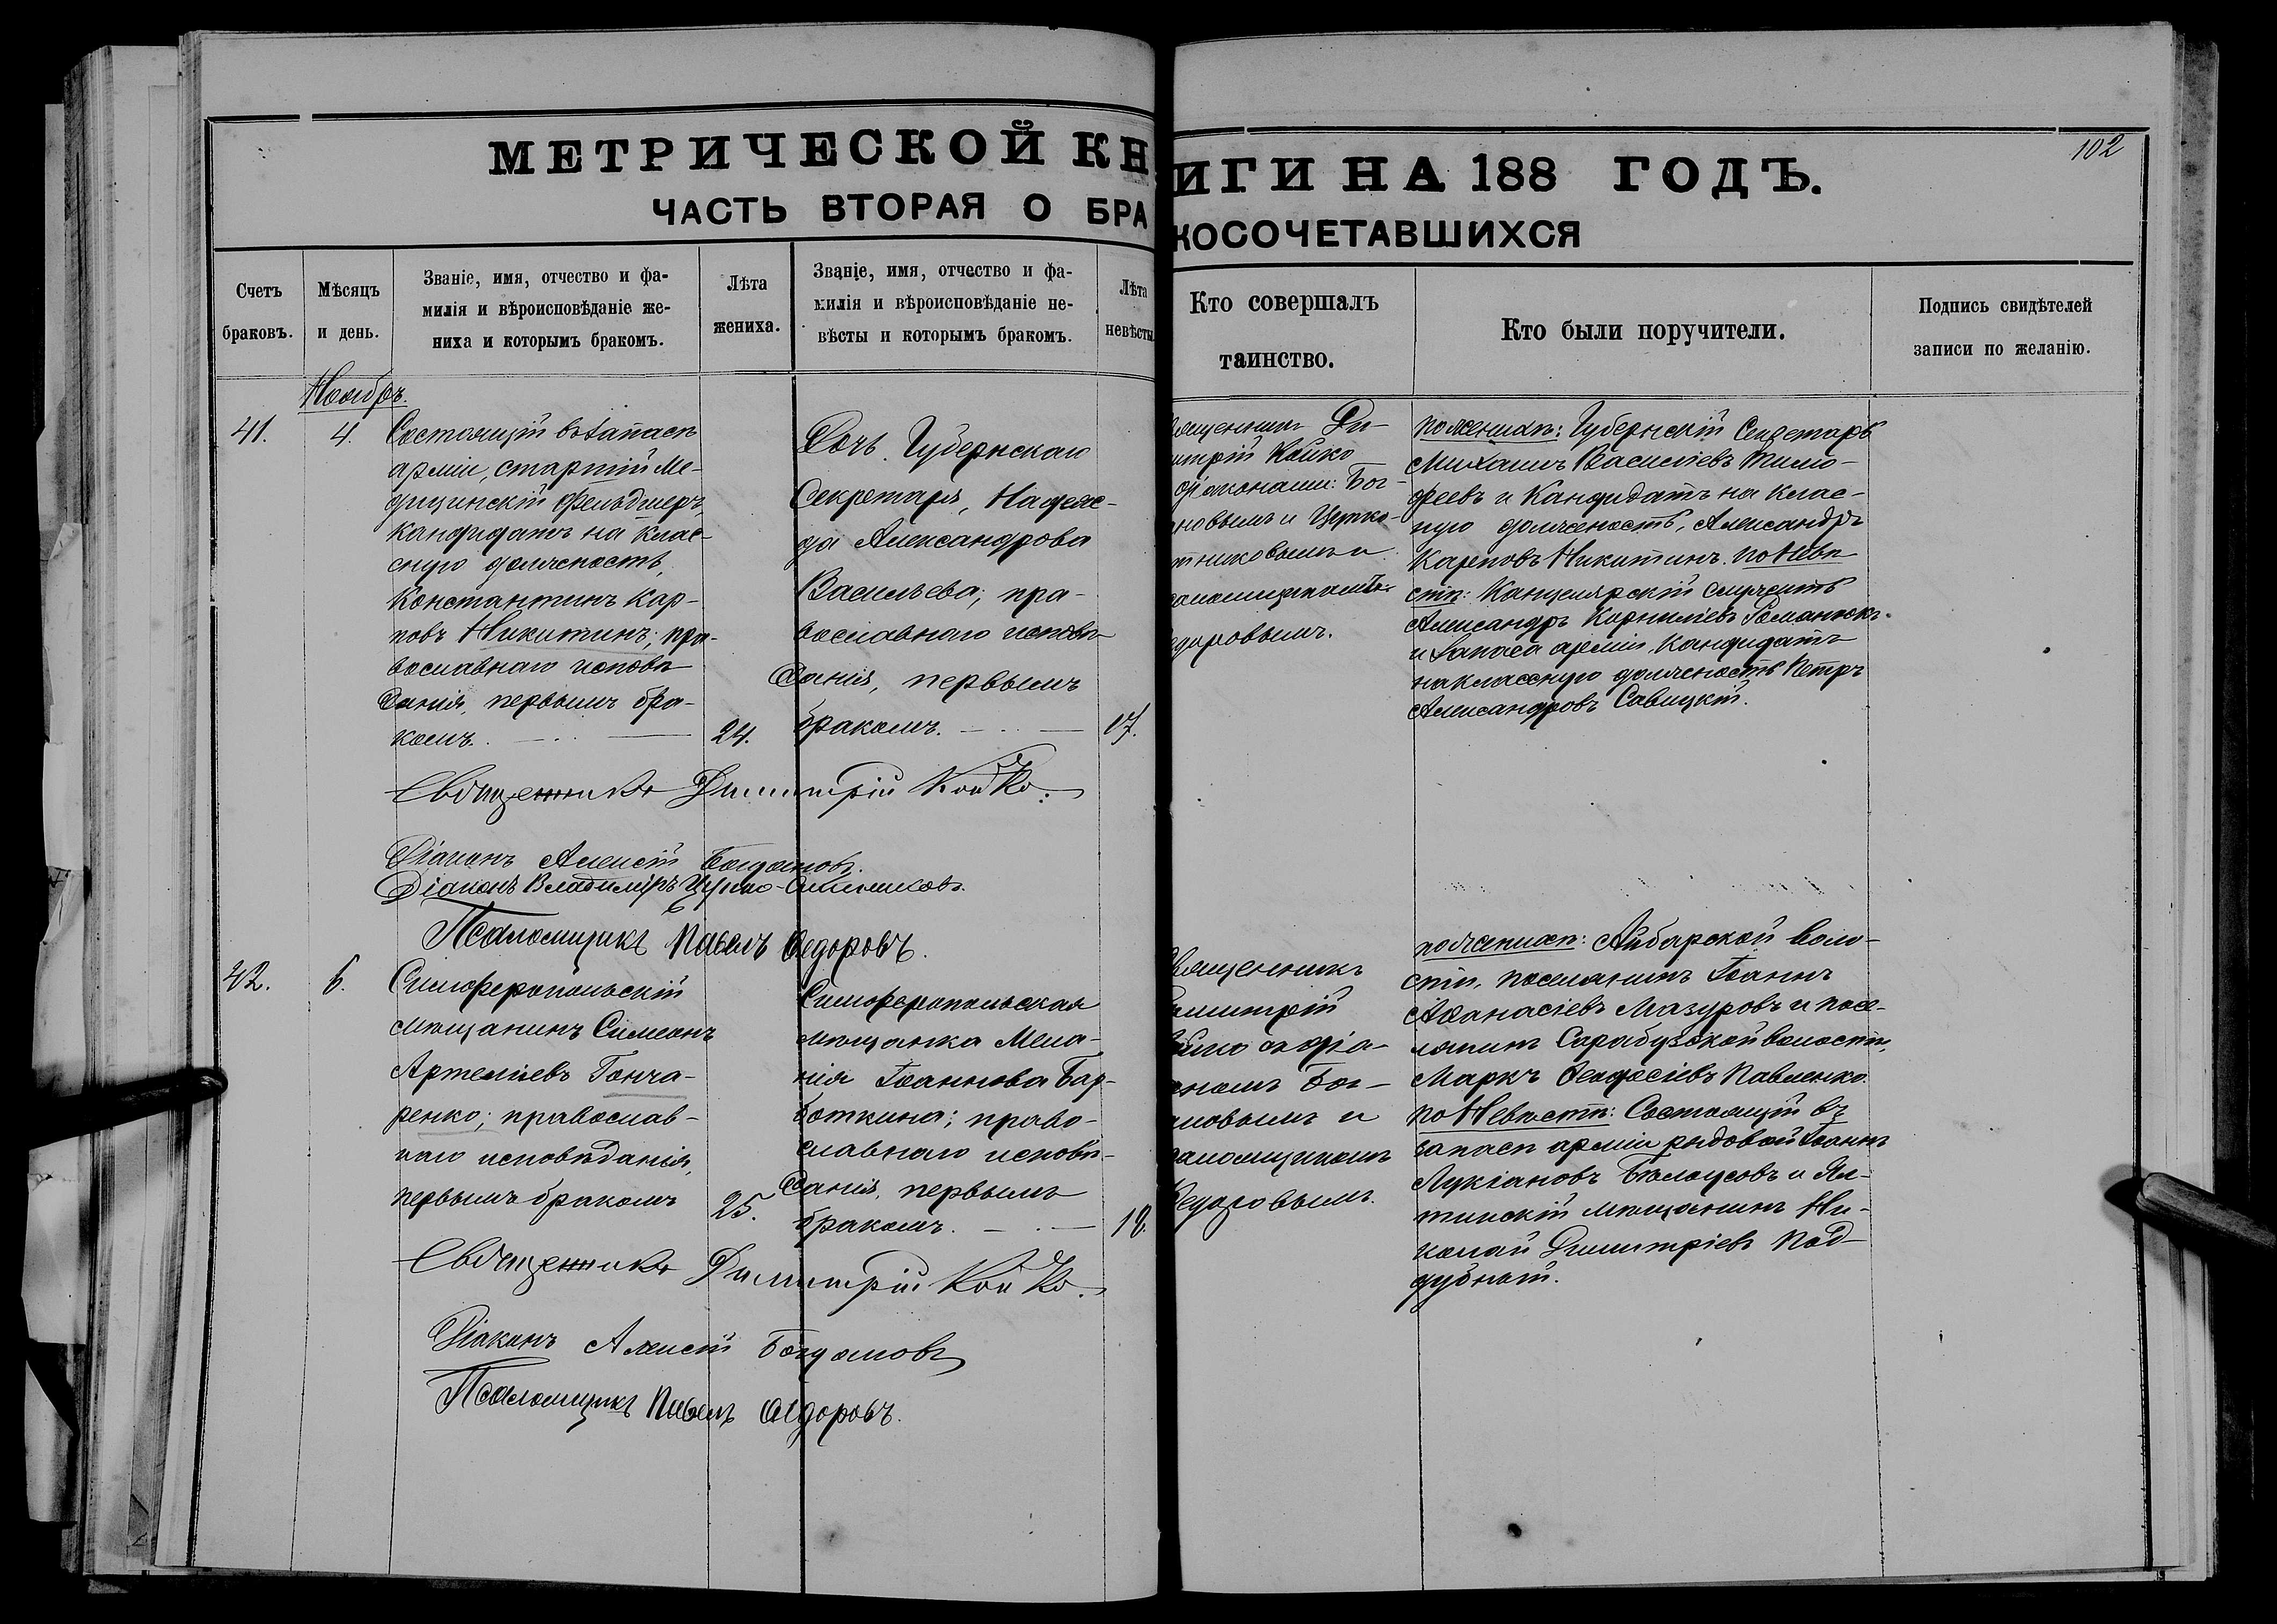 МЕТРИЧЕСКОЙ КН
ИГИ НА 188 ГОДЪ.
102
ЧАСТЬ ВТОРАЯ О БРА
КОСОЧЕТАВШИХСЯ
Счетъ
браковъ.
Мѣсяцъ
и день.
Званіе, имя, отчество и фа-
милія и вѣроисповѣданіе же-
ниха и которымъ бракомъ.
Лѣта
жениха.
Званіе, имя, отчество и фа-
милія и вѣроисповѣданіе не-
вѣсты и которымъ бракомъ.
Лѣта
невѣсты
Кто совершалъ
таинство.
Кто были поручители.
Подпись свидѣтелей
записи по желанію.
Ноябрь.
41.
4.
Состоящій въ запасѣ
арміи, старшій Ме-
дицинскій Фельдшеръ,
Кандидатъ на клас-
сную должность,
Константинъ Кар-
повъ Никитинъ; пра-
вославнаго исповѣ-
данія, первымъ бра-
комъ.
24.
Дочь Губернскаго
Секретаря, Надеж-
да Александрова
Васильева; пра-
вославнаго исповѣ-
данія, первымъ
бракомъ.
17.
вященникъ Ди-
итрій Койко
діаконами: Бог-
новымъ и Церко-
тниковымъ и
саломщикомъ
едоровымъ.
по женихѣ: Губернскій Секретарь
Михаилъ Василіевъ Тимо-
феевъ и Кандидатъ на клас-
ную должность, Александръ
Карповъ Никитинъ. по Невѣ
стѣ: Канцелярскій служитель
Александръ Корниліевъ Романюкъ
и запаса арміи, Кандидатъ
на классную должность Петръ
Александровъ Савицкій.
Священникъ Димитрій Койко.
Діаконъ Алексій Богдановъ.
Діаконъ Владиміръ Церко-
Псаломщикъ Павелъ Федоровъ.
42.
6.
Симферопольскій
мѣщанинъ Симеонъ
Артеміевъ Гонча-
ренко; православ-
наго исповѣданія,
первымъ бракомъ
25.
Симферопольская
мѣщанка Мела-
нія Іоаннова Бар-
боткина; право-
славнаго исповѣ-
данія, первымъ
бракомъ.
18.
вященникъ
имитрій
ойко съ діа-
ономъ Бог-
ановымъ и
саломщикомъ
Федоровымъ.
по женихѣ: Айбарской воло-
сти, поселянинъ Іоаннъ
Аѳанасіевъ Мазуровъ и посе-
лянинъ Сарабузской волости,
Маркъ Ѳеодосіевъ Павленко.
по Невѣстѣ: Состоящій въ
запасѣ арміи рядовой Іоаннъ
Лукіановъ Бѣлоусовъ и Ял-
тинскій мѣщанинъ Ни-
колай Димитріевъ Под-
дубный.
Священникъ Димитрій Койко.
Діаконъ Алексій Богдановъ
Псаломщикъ Павелъ Федоровъ.